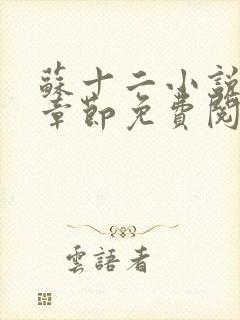 蘇十二小說
章節免費閱
雲語者